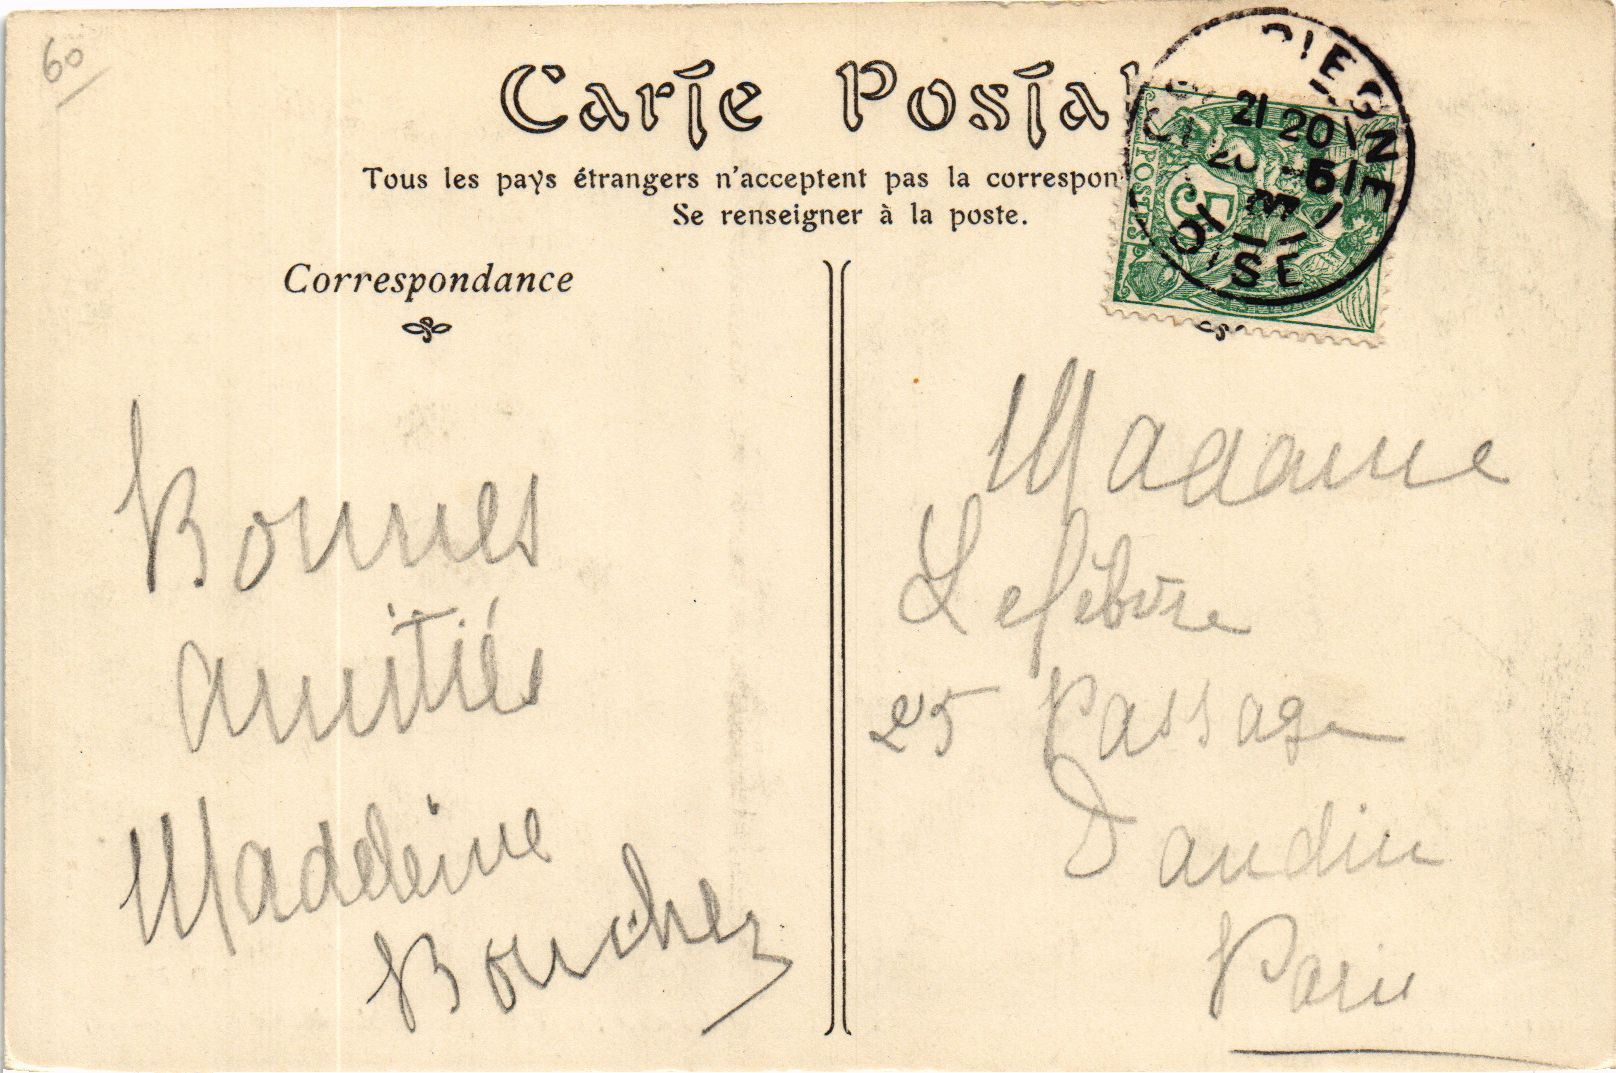 60
Carte Postal
Tous les pays étrangers n'acceptent pas la correspon
Se renseigner à la poste.
Correspondance
PIEGNE
21 20
5
OISE
POSTES
5
Bonnes
amitiés
Madeleine
Boucher
Madame
Lefèbvre
25 Passage
Daudin
Paris